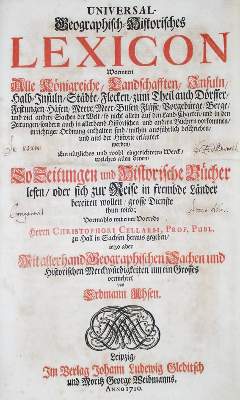 UNIVERSAL-
Geographisch-Historisches
LEXICON
Worinnen
Alle Königreiche, Landschafften, Insuln,
Halb-Insuln, Städte, Flecken, zum Theil auch Dörffer,
Festungen, Häfen, Meere, Meer-Busen, Flüsse, Vorgebürge, Berge,
und viel anders Sachen der Welt, so nicht allein auf den Land-Charten, und in den
Zeitungen, sondern auch in allerhand Historischen und andern Büchern vorkommen,
in richtiger Ordnung enthalten sind, mit allem ausführlich beschrieben,
und aus der Historie erläutert
werden,
ein nützliches und wohl eingerichtetes Werck,
welches allen denen,
So Zeitungen und Historische Bücher
lesen, oder sich zur Reise in frembde Länder
bereiten wollen, grosse Dienste
thun wird;
Vormahls mit einer Vorrede
Herrn CHRISTOPHORI CELLARII, PROF. PUBL.
zu Hall in Sachsen heraus gegeben,
itzo aber
Mit allerhand Geographischen Sachen und
Historischen Merckwürdigkeiten um ein Grosses
vermehret
von
Erdmann Uhsen.
Leipzig,
Im Verlag Johann Ludewig Gleditsch
und Moritz George Weidmanns.
ANNO 1710.